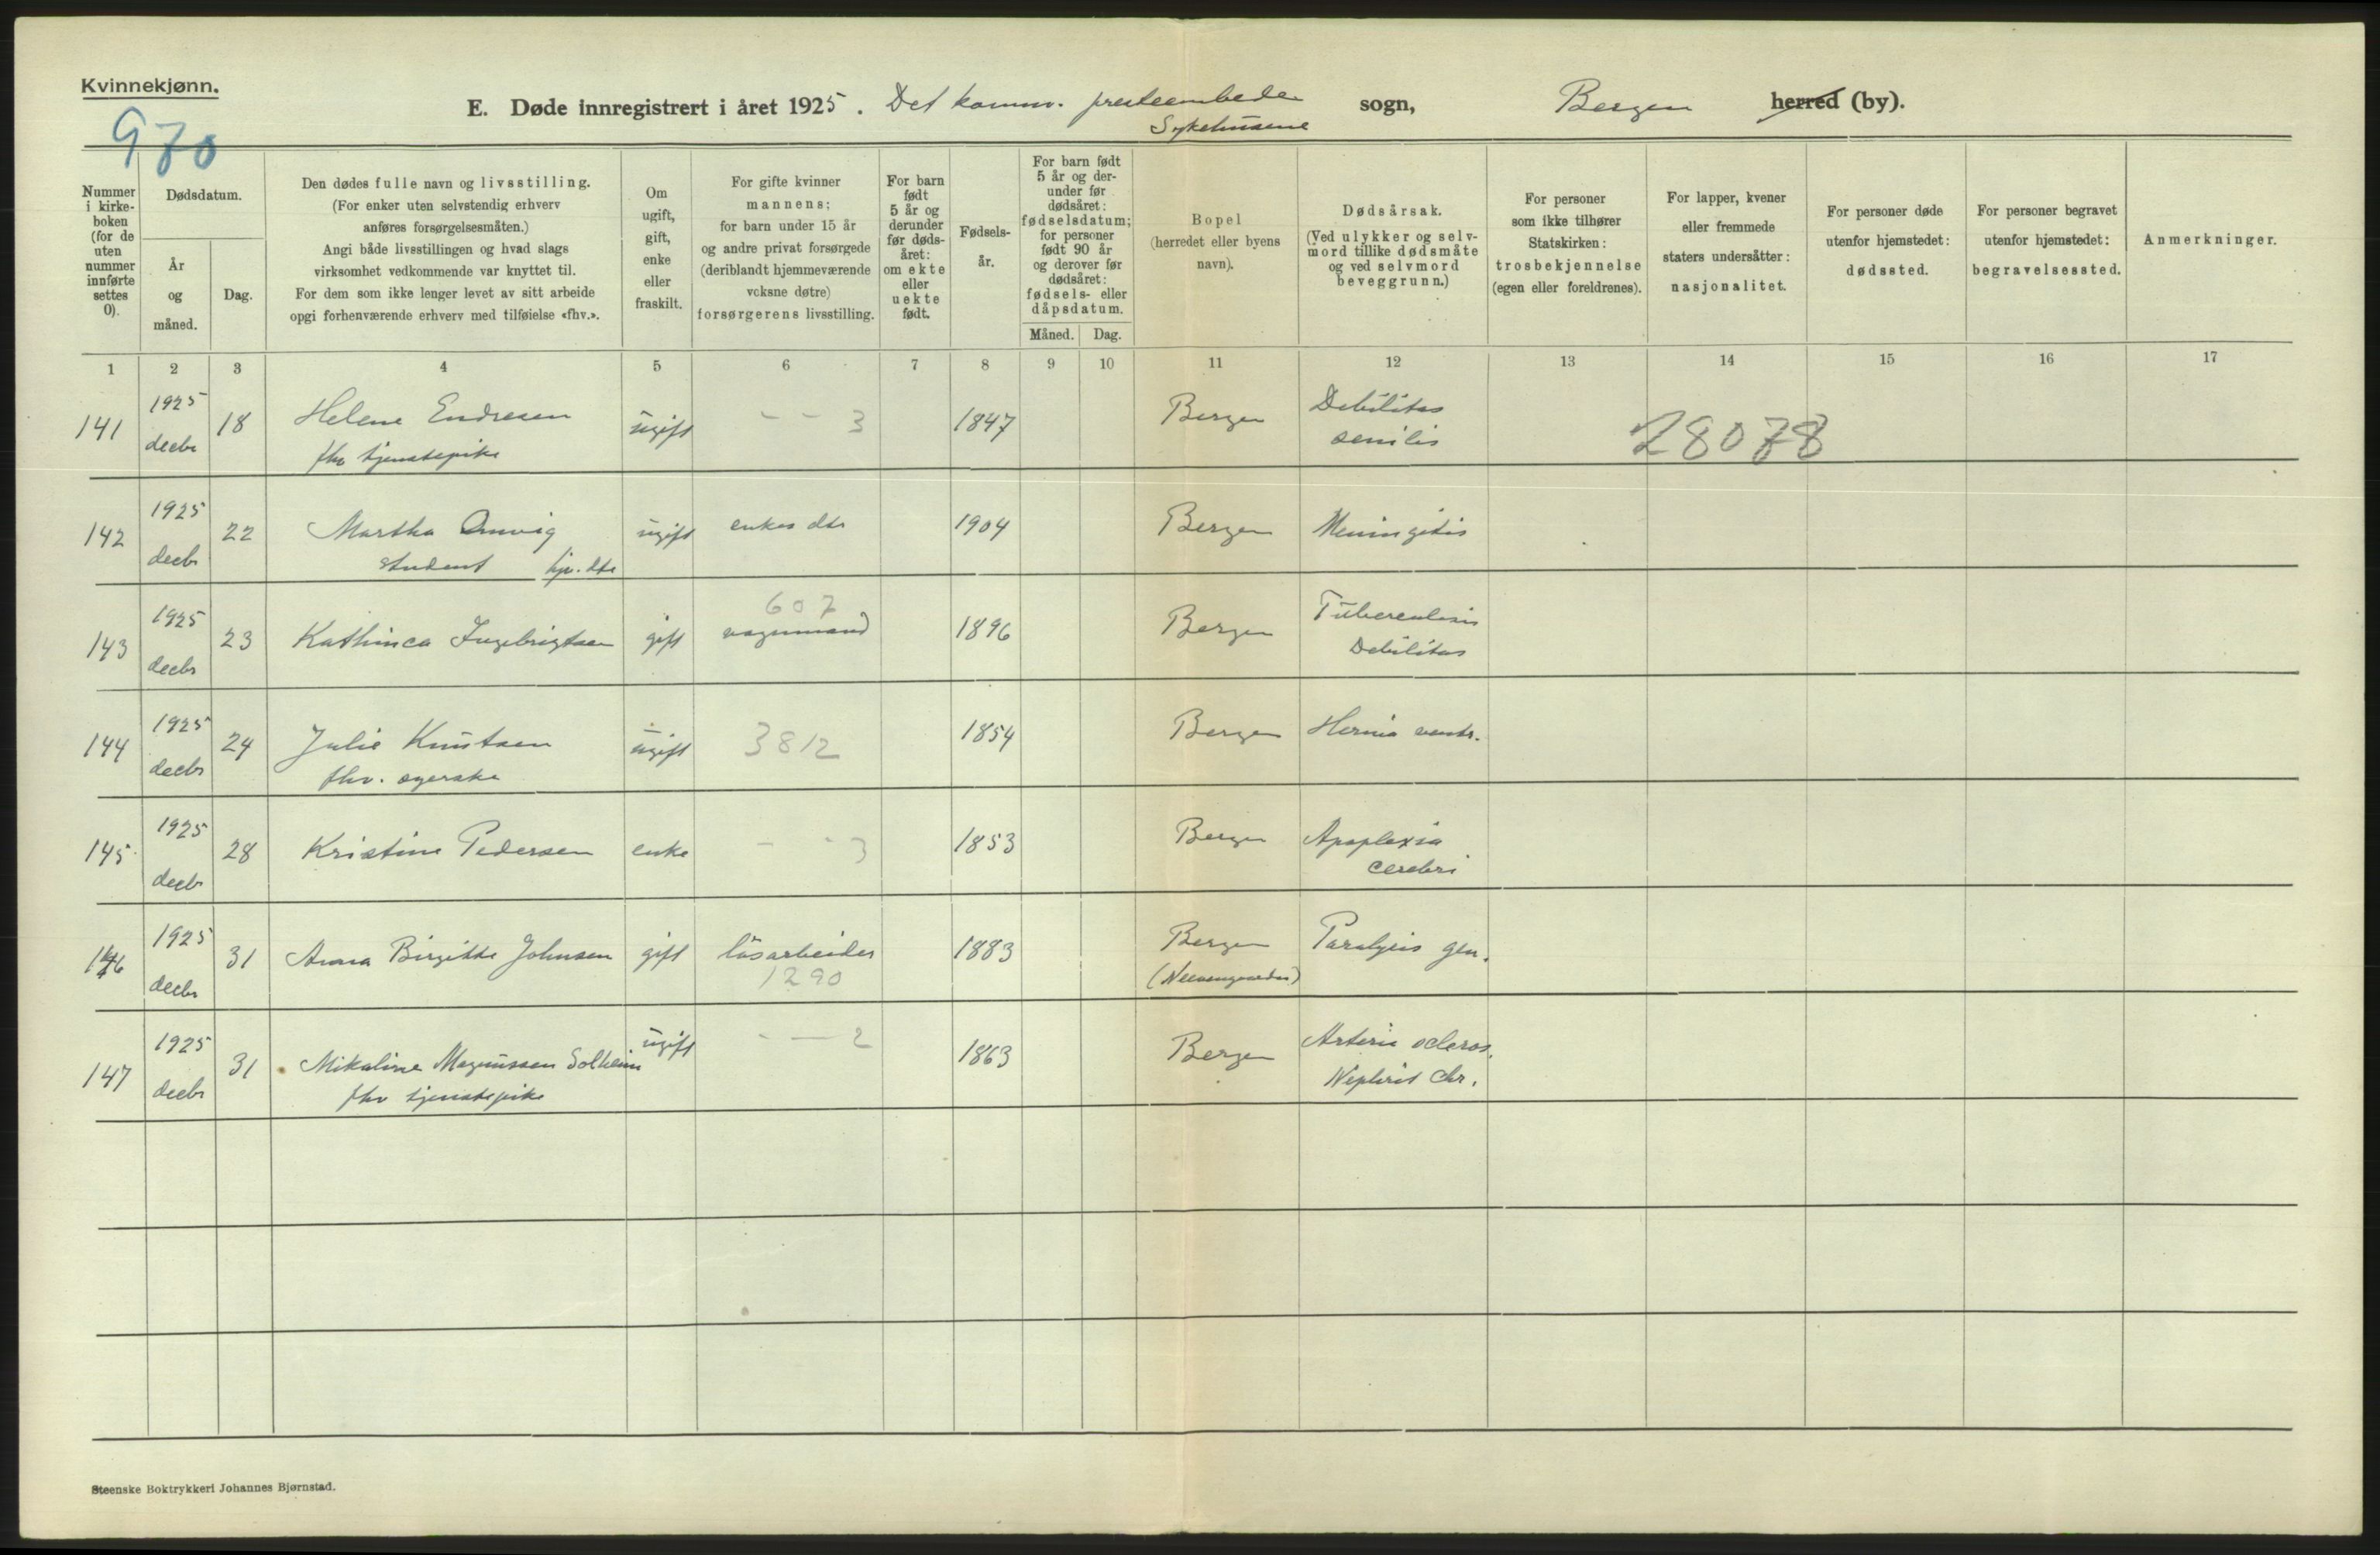 Kvinnekjønn.
970
E. Døde innregistrert i året 1925. Det komm. presteembede sogn, Bergen herred (by).
Sykehusene
Nummer i kirke-boken (for de uten nummer innførte settes 0).
Dødsdatum.
År og måned.
Dag.
Den dødes fulle navn og livsstilling.
(For enker uten selvstendig erhverv
anføres forsørgelsesmåten.)
Angi både livsstillingen og hvad slags
virksomhet vedkommende var knyttet til.
For dem som ikke lenger levet av sitt arbeide
opgi forhenværende erhverv med tilføielse «fhv.».
Om ugift, gift, enke eller fraskilt.
For gifte kvinner
mannens;
for barn under 15 år
og andre privat forsørgede
(deriblandt hjemmeværende
voksne døtre)
forsørgerens livsstilling.
For barn født 5 år og derunder før døds-året: om ekte eller uekte født.
Fødsels-år.
For barn født 5 år og der-under før dødsåret: fødselsdatum; for personer født 90 år og derover før dødsåret: fødsels- eller dåpsdatum.
Måned. Dag.
Bopel
(herredet eller byens
navn).
Dødsårsak.
(Ved ulykker og selv-
mord tillike dødsmåte
og ved selvmord
beveggrunn.)
For personer
som ikke tilhører
Statskirken:
trosbekjennelse
(egen eller foreldrenes).
For lapper, kvener
eller fremmede
staters undersåtter:
nasjonalitet.
For personer døde
utenfor hjemstedet:
dødssted.
For personer begravet
utenfor hjemstedet:
begravelsessted.
Anmerkninger.
1 2 3 4 5 6 7 8 9 10 11 12 13 14 15 16 17
141 1925 decbr 18 Helene Endresen ugift - - 3 1847 Bergen Debilitas
fhv tjenstepike senilis 28078
142 1925 decbr 22 Martha ugift enkes dtr 1904 Bergen Meningitis
student hjv. dtr
607
143 1925 decbr 23 Kathinca Ingebrigtsen gift vognmand 1896 Bergen Tuberculosis
Debilitas
144 1925 decbr 24 Julie Knutsen ugift 3812 1854 Bergen Hernia ventr.
fhv. syerske
145 1925 decbr 28 Kristine Pedersen enke - - 3 1853 Bergen Apoplexia
cerebri
146 1925 decbr 31 Anna Birgitte Johnsen gift løsarbeider 1883 Bergen Paralysis gen.
1290 (Neevengaarden)
147 1925 decbr 31 Mikaline Magnussen Solheim ugift - - 2 1863 Bergen Arterio scleros.
fhv tjenstepike Nephrit chr.
Steenske Boktrykkeri Johannes Bjørnstad.